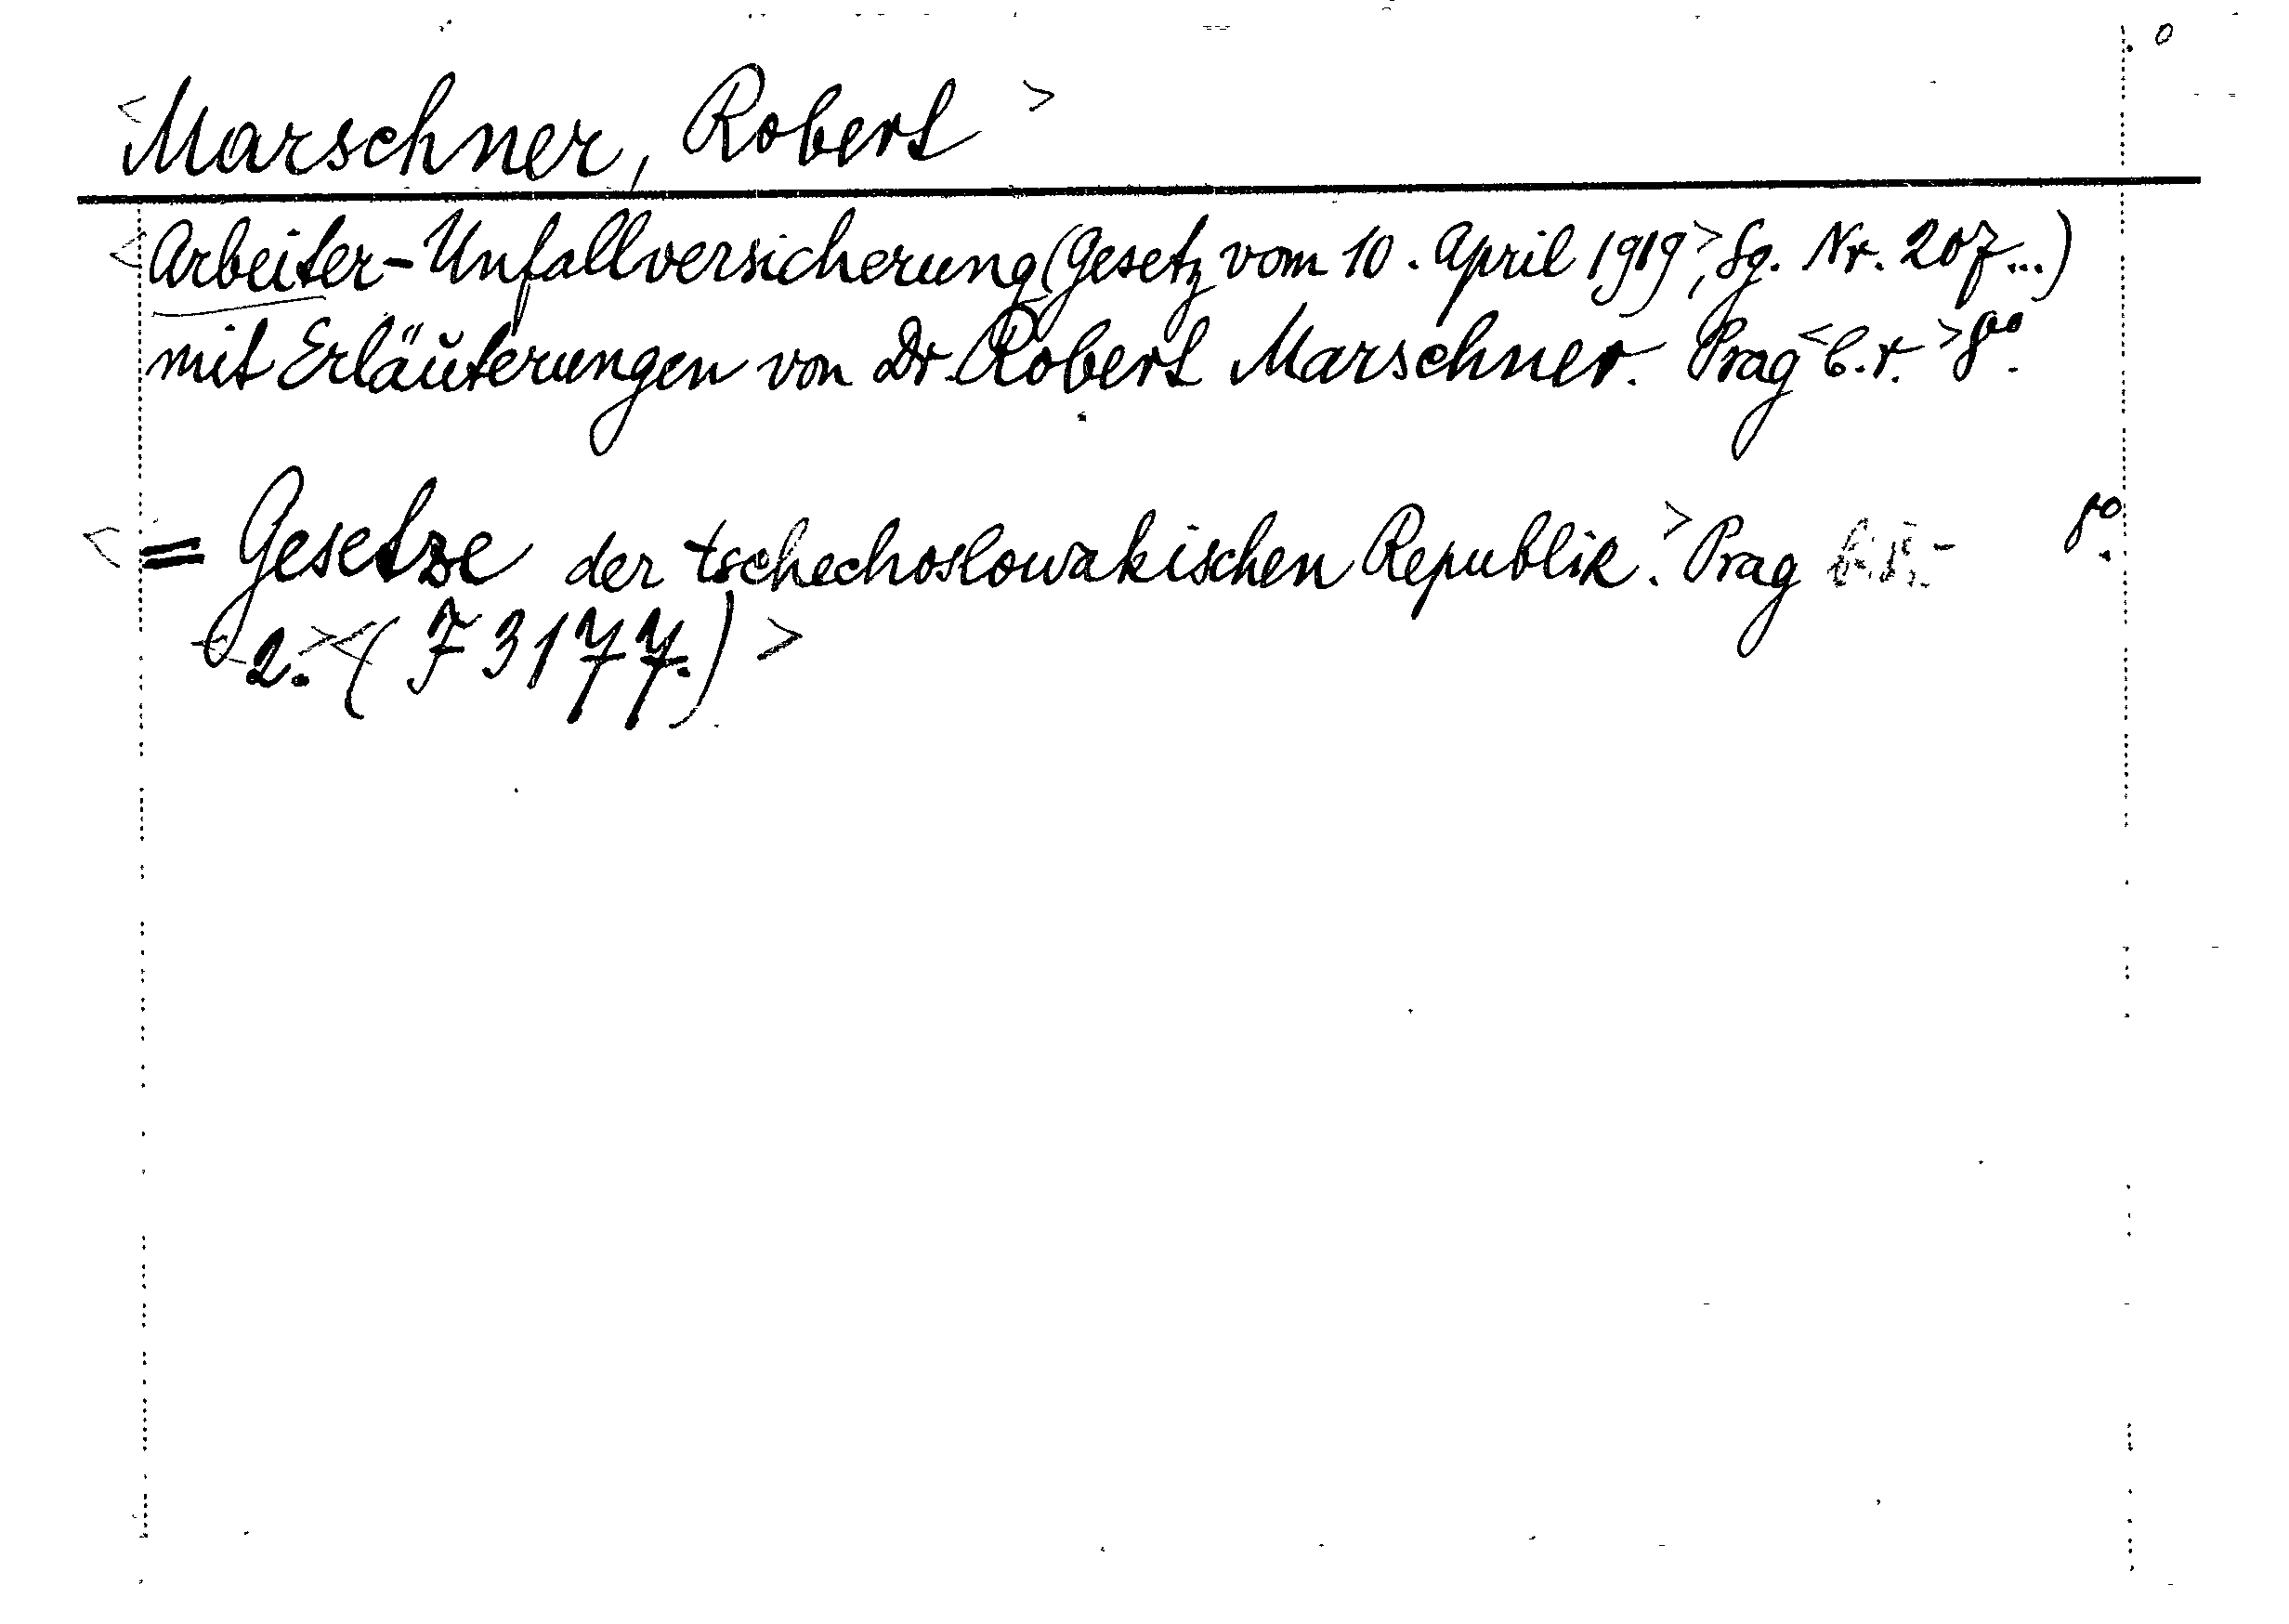 <Marschner, Robert>
<Arbeiter-Unfallversicherung (Gesetz vom 10. April 1919>, Sg. Nr. 207...)
mit Erläuterungen von Dr. Robert Marschner. Prag <b.r.> 8°.
<= Gesetze der tschechoslowakischen Republik.> Prag b.r.- 8°.
2.><(F 3177.)>